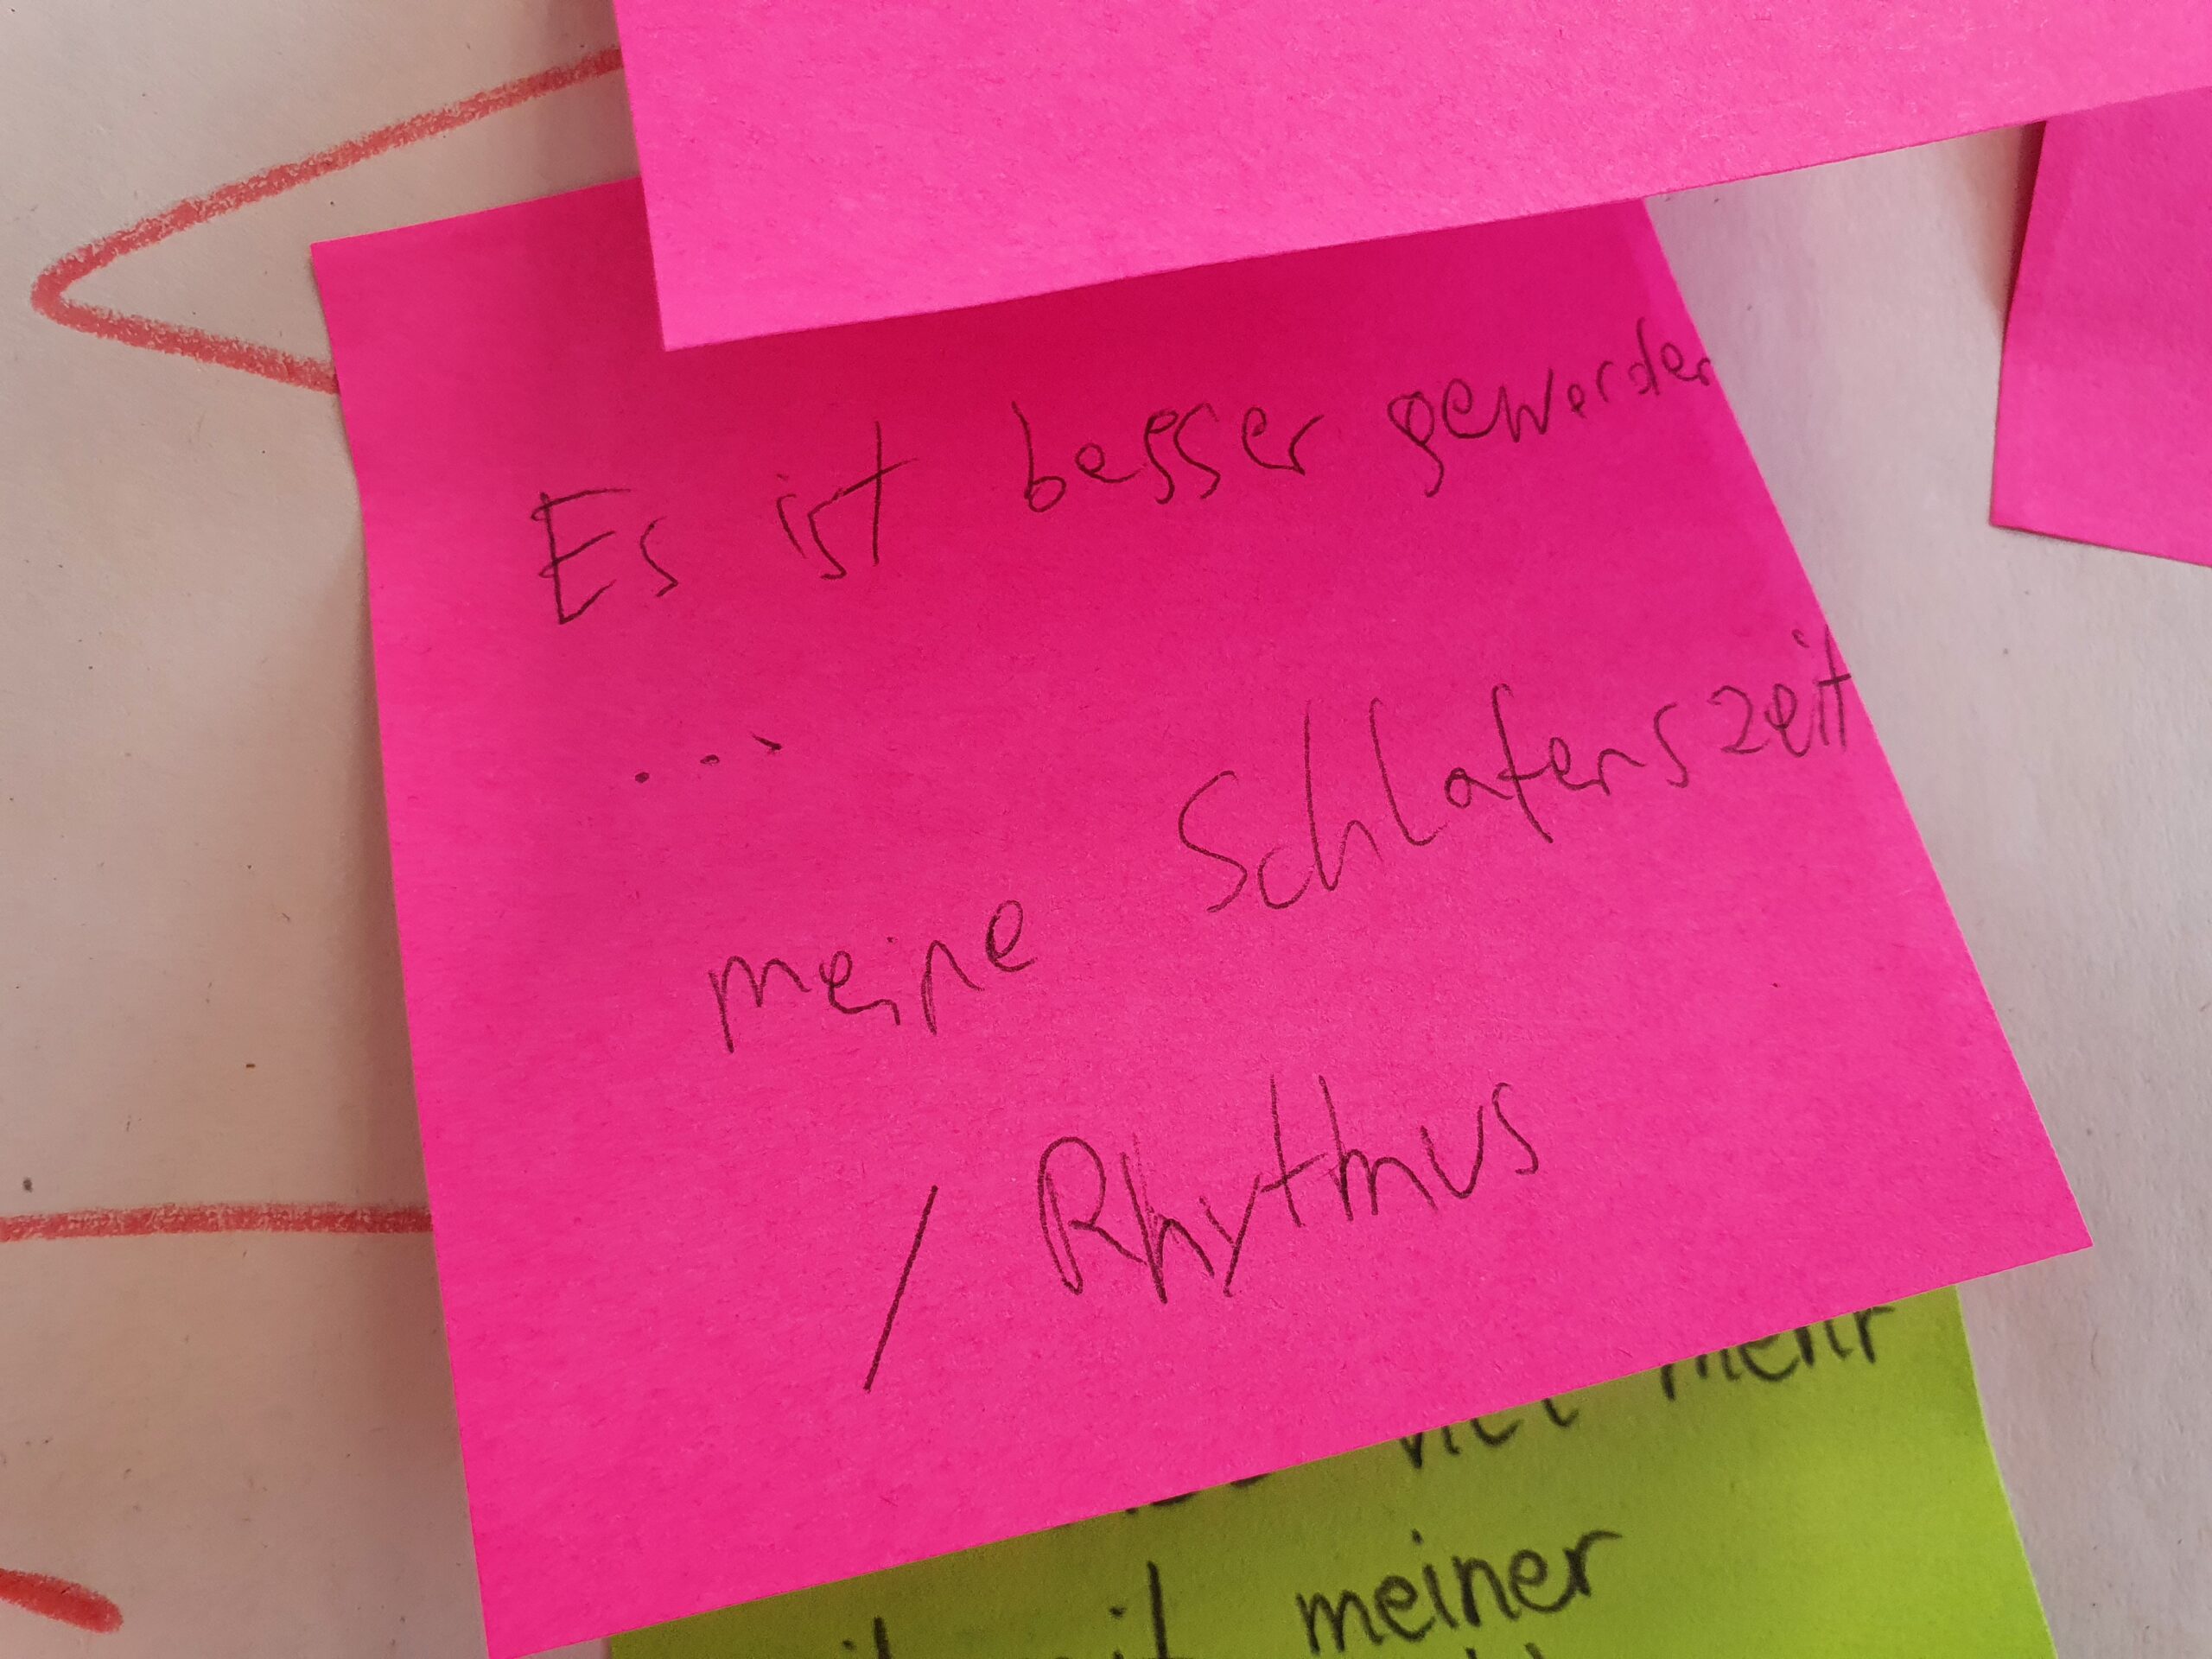 Es ist besser geworden
...
meine Schlafenszeit
/ Rhythmus
mehr
meiner